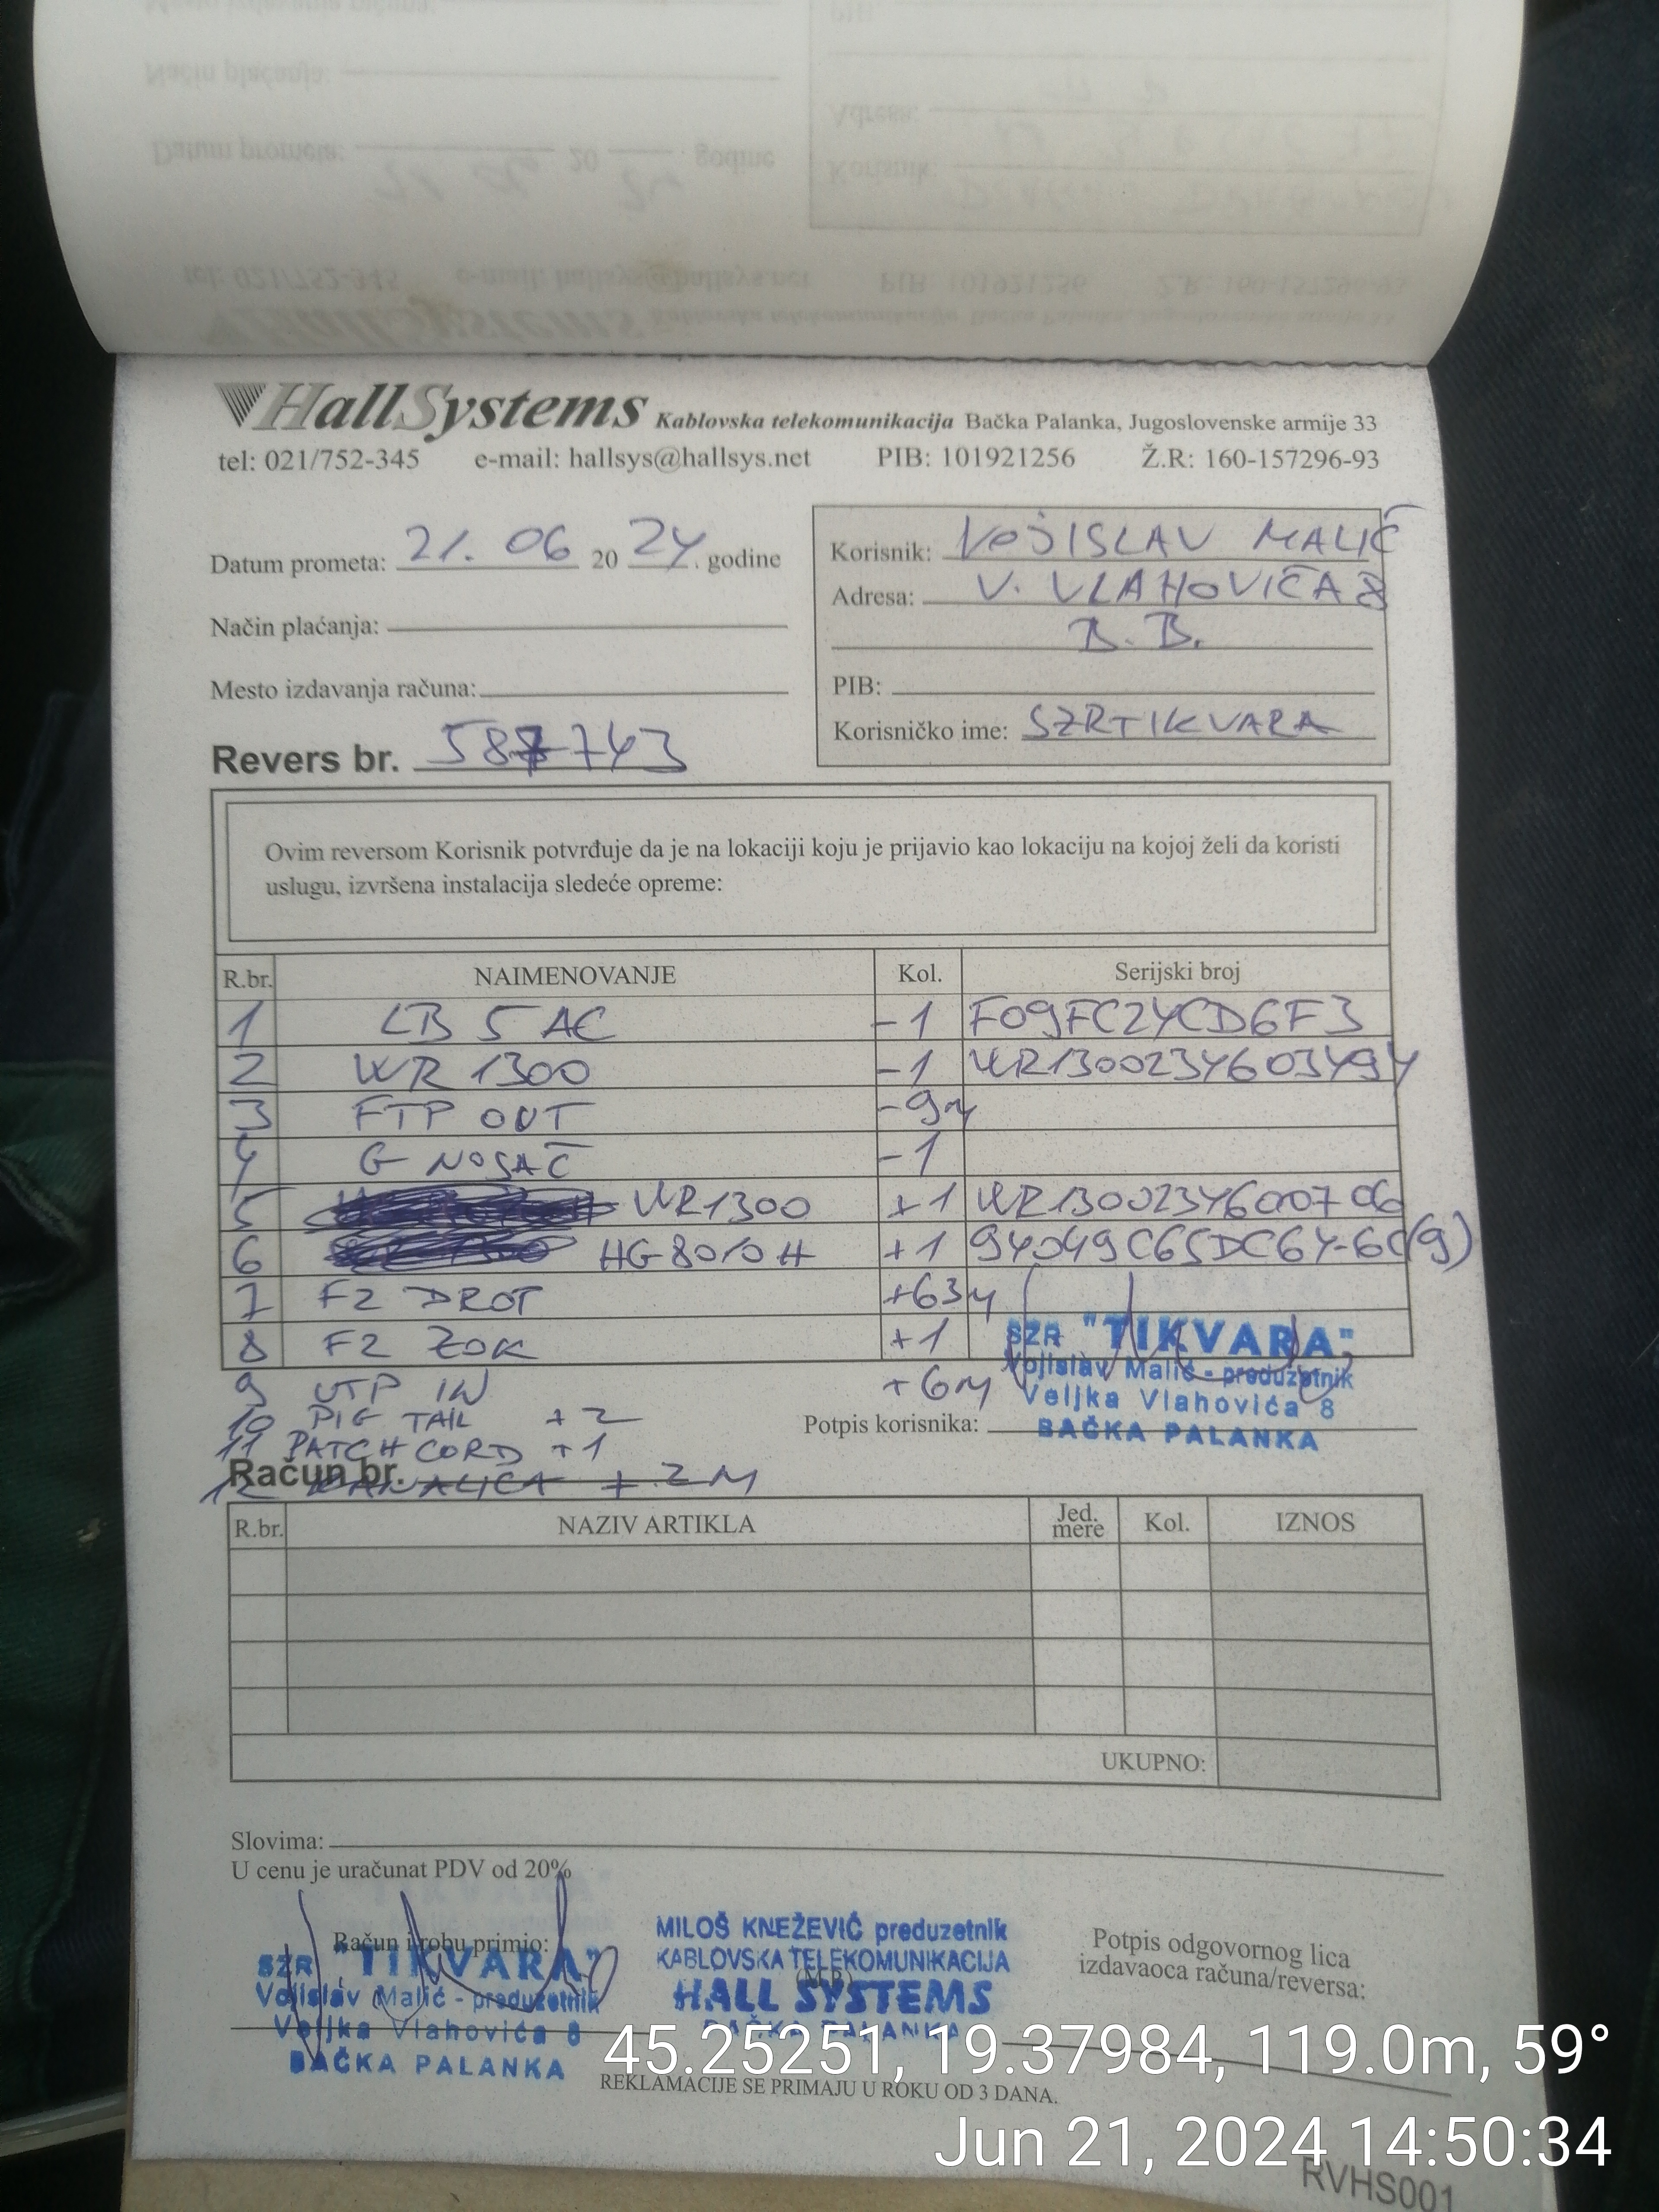 HallSystems Kablovska telekomunikacija Bačka Palanka, Jugoslovenske armije 33
tel: 021/752-345 e-mail: hallsys@hallsys.net PIB: 101921256 Ž.R: 160-157296-93
Datum prometa: 21. 06 20 24. godine
Način plaćanja:
Mesto izdavanja računa:
Revers br. 587743
Korisnik: VOJISLAV MALIĆ
Adresa: V. VLAHOVIĆA 8
B. B.
PIB:
Korisničko ime: SZRTIKVARA
Ovim reversom Korisnik potvrđuje da je na lokaciji koju je prijavio kao lokaciju na kojoj želi da koristi
uslugu, izvršena instalacija sledeće opreme:
R.br. NAIMENOVANJE Kol. Serijski broj
1 LB 5 AC -1 F09FC24CD6F3
2 WR 1300 -1 WR1300234603494
3 FTP OUT -9M
4 G NOSAČ -1
5 WR1300 +1 WR1300234600706
6 HG8010H +1 94049C65DC64-6C(9)
7 F2 DROT +63M
8 F2 ZOK +1
9 UTP IN +6M
10 PIG TAIL +2
11 PATCH CORD +1
12 KANALICA + 2M
SZR "TIKVARA"
Vojislav Malić - preduzetnik
Veljka Vlahovića 8
BAČKA PALANKA
Potpis korisnika:
Račun br.
R.br. NAZIV ARTIKLA Jed. mere Kol. IZNOS
UKUPNO:
Slovima:
U cenu je uračunat PDV od 20%
Račun i robu primio:
SZR "TIKVARA"
Vojislav Malić - preduzetnik
Veljka Vlahovića 8
BAČKA PALANKA
MILOŠ KNEŽEVIĆ preduzetnik
KABLOVSKA TELEKOMUNIKACIJA
(M.P.)
HALL SYSTEMS
BAČKA PALANKA
Potpis odgovornog lica
izdavaoca računa/reversa:
REKLAMACIJE SE PRIMAJU U ROKU OD 3 DANA.
45.25251, 19.37984, 119.0m, 59°
Jun 21, 2024 14:50:34
RVHS001